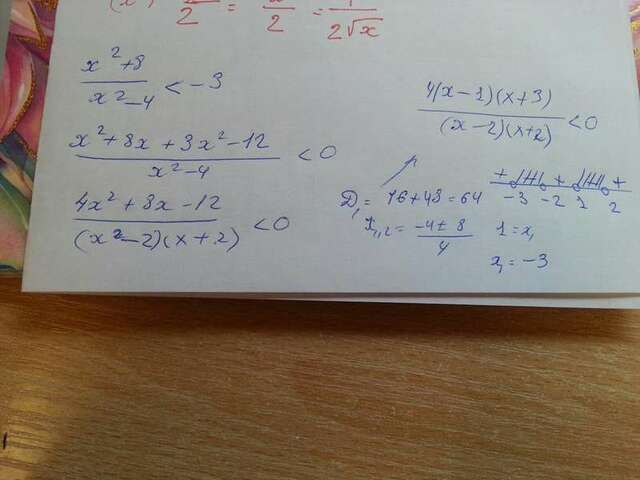 2 = 2 = 1/(2√x)
(x²+8)/(x²-4) < -3
(x²+8x+3x²-12)/(x²-4) < 0
(4x²+8x-12)/((x²-2)(x+2)) < 0
(4(x-1)(x+3))/((x-2)(x+2)) < 0
D₁ = 16+48=64
x₁,₂ = (-4±8)/4
1=x₁
x₁=-3
+ + +
-3 -2 1 2